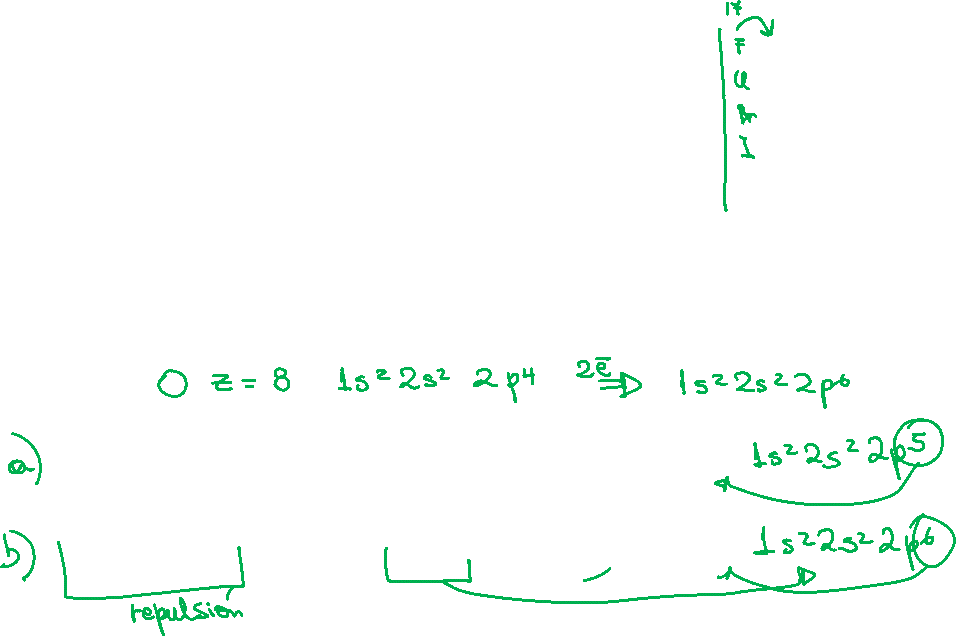 17
F
Cl
Br
I
O z = 8 1s² 2s² 2p⁴ 2e̅ ⇒ 1s² 2s² 2p⁶
a) 1s² 2s² 2p⁵
b) 1s² 2s² 2p⁶
repulsion